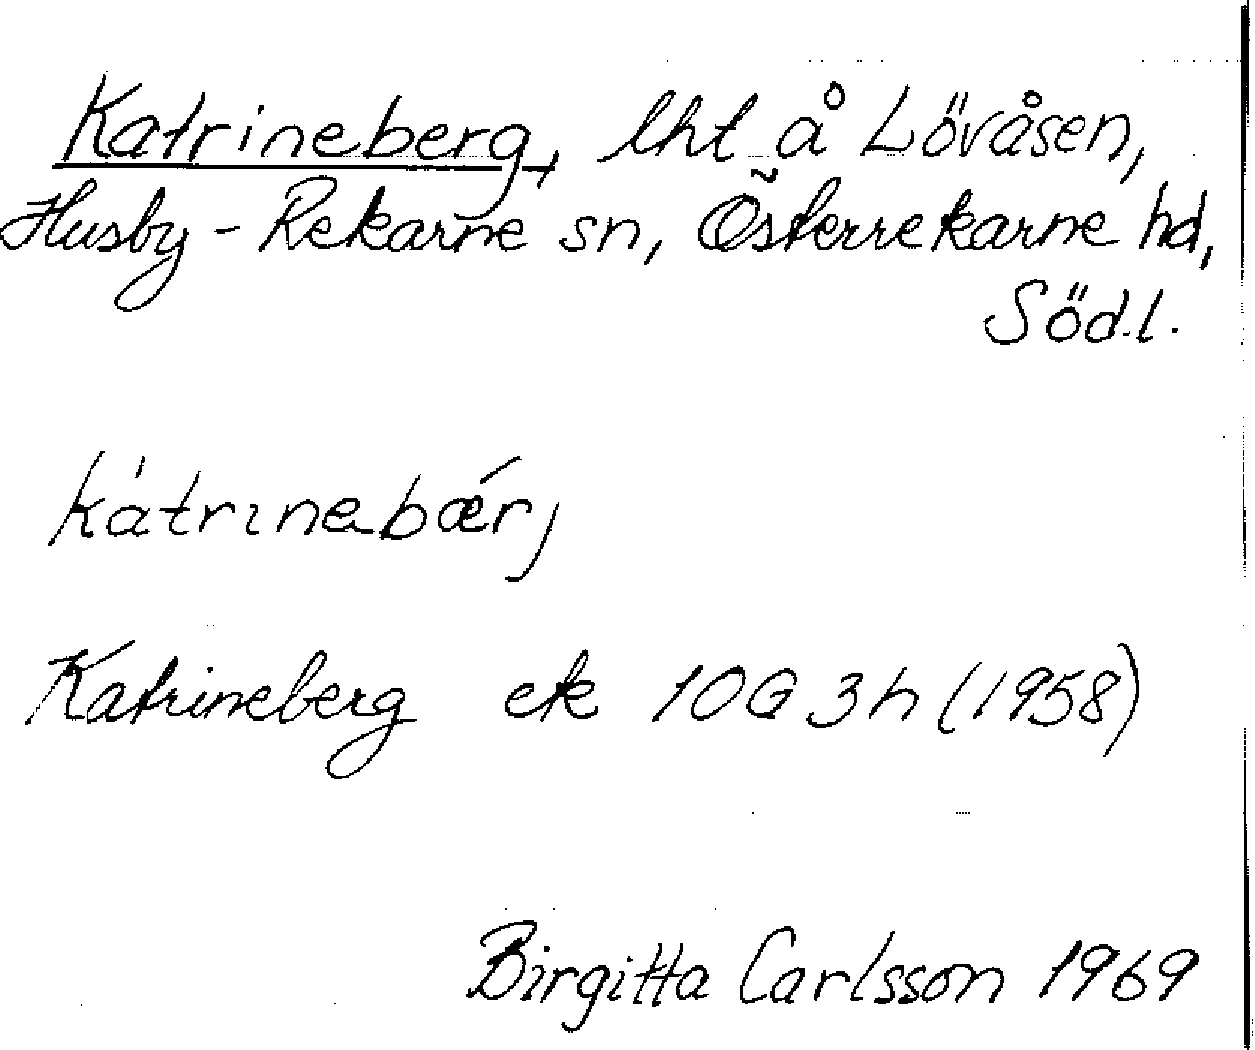 Katrineberg, lht å Lövåsen,
Husby-Rekarne sn, Österrekarne hd,
Södl.
kátrınabǽrj
Katrineberg ek 10G 3h (1958)
Birgitta Carlsson 1969